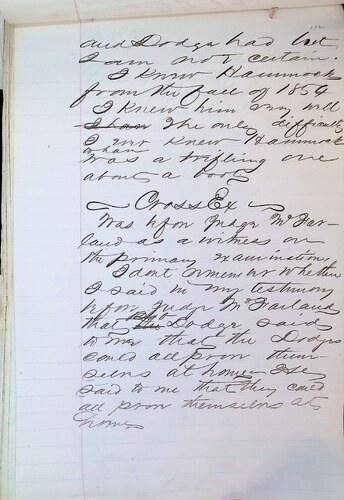 and Dodge had but
I am not certain.
I knew Hammock
from the fall of 1854
I knew him very well
The only difficulty
I ever knew Hammock
to have
was a trifling one
about a boot
Cross Ex
Was before Judge McFar-
land as a witness on
the primary examination.
I dont remember whether
I said in my testimony
before Judge McFarland
that Dodge said
to me that the Dodges
could all prove them-
selves at home He
said to me that they could
all prove themselves at
home